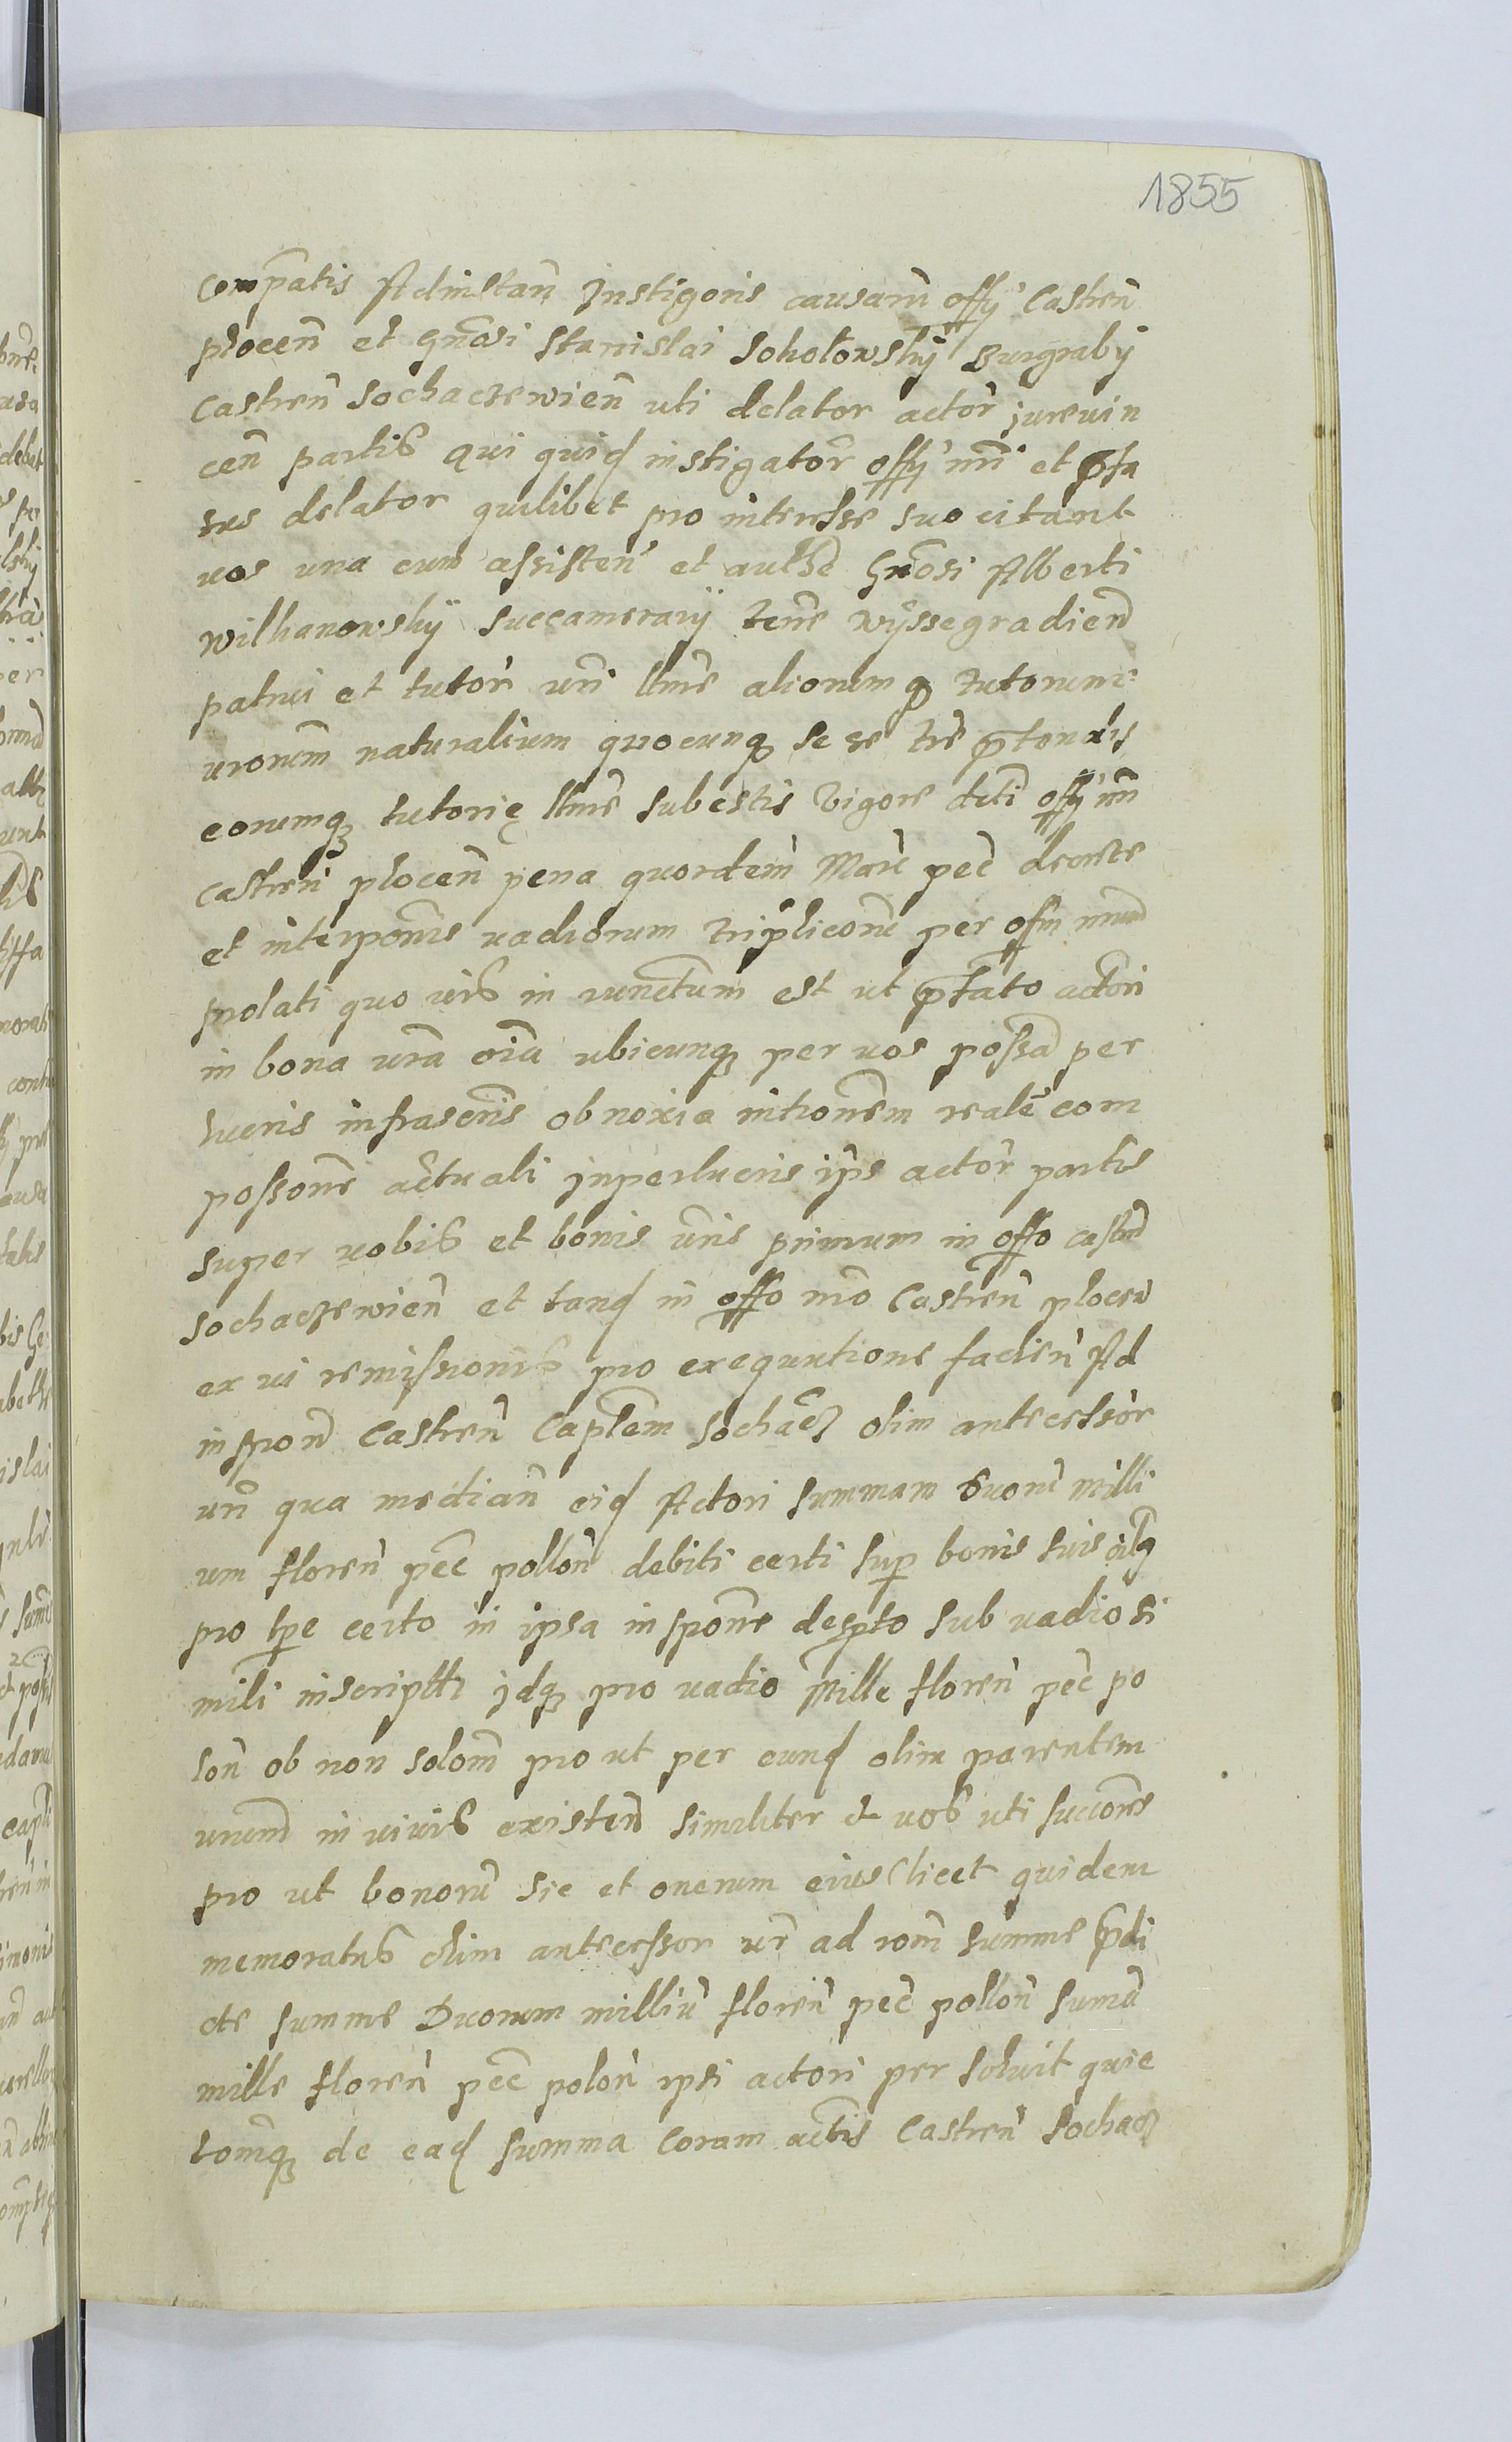 1855
compatis Adinstan Instigoris causarũ offy Castreñ
ploceñ et gnõsi Stanislai Sokołowskij Burgrabij
Castreñ Sochaczewieñ uti delator actor jurevin
ceñ partis qui quid instigator offy nri et pfa
tus delator quilibet pro interesse suo citant
vos una cum assisteñ et authẽ Gnosi Alberti
wilkanowskij Succamerarij terre wyssegradieñ
patrui et tutor vri ltime aliorumq tutorum
vrorum naturalium quocunq se se tre ptenditis
eorumq tutorię ltime subestis Vigore dcti offy nri
castreñ ploceñ pena quordem Marc pec decrete
et interponis vadiorum triplicoñe per ofm nrum
prolati quo vris in iunctum est ut pfato actori
in bona vra oia ubicunq per vos possa per
lucris infrascris obnoxia intronem reale com
possone actuali jnperlucris ips actor partis
super vobis et bonis vris primum in offo castreñ
Sochaczewieñ et tand in offo nro Castreñ ploceñ
ex vi remissionis pro exequutione facień Ad
insproñ Castreñ Caplem Sochacz olim antecessor
vri qua mediañ eid Actori summam duoru milli
um floreñ pec polloñ debiti certi sup bonis suis oibq
pro tpe certo in ipsa inspone despto sub vadio si
mili inscriptti jdq pro vadio Mille floreñ pec po
loñ ob non solom pro ut per eund olim parentem
vrum in vivis existeñ similiter et vos uti succores
pro ut bonoru sic et onerum eius licet quidem
memoratus olim antecessor vr ad rom summe pdi
cte summe Duorum milliu floreñ pec polloñ sumã
mille floreñ pec poloñ ipsi actori per soluit quie
tomq de ead summa Coram actis Castreñ Sochacz